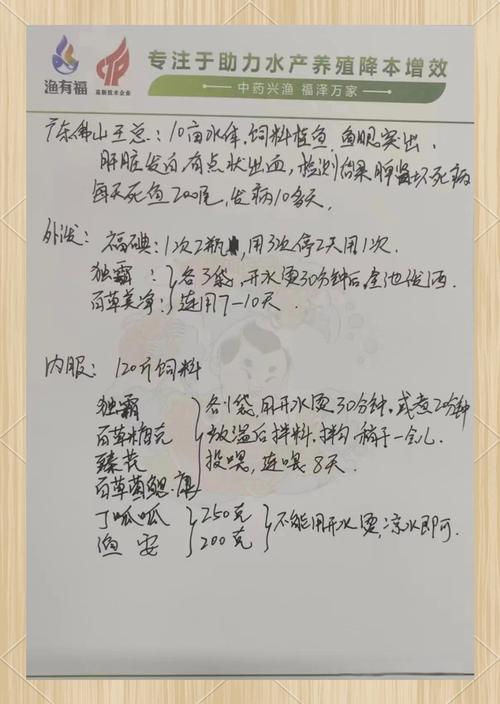 渔有福
高新技术企业
专注于助力水产养殖降本增效
中药兴渔 福泽万家
广东佛山王总：10亩水体，饲料桂鱼，鱼眼突出，
肝脏发白，有点状出血，检测结果脾肾坏死病
每天死鱼200尾，发病10多天．
外泼：福碘：1次2瓶，用3次停2天用1次．
独霸：各3袋，开水烫30分钟后全池泼洒．
百草美净：连用7-10天．
内服：120斤饲料
独霸 各1袋，用开水烫30分钟，或煮20分钟
百草粕克 放温后拌料，拌匀稍干一会儿
臻花 投喂，连喂8天．
百草菌鳃康
丁呱呱 250克 不能用开水烫，凉水即可．
渔安 200克